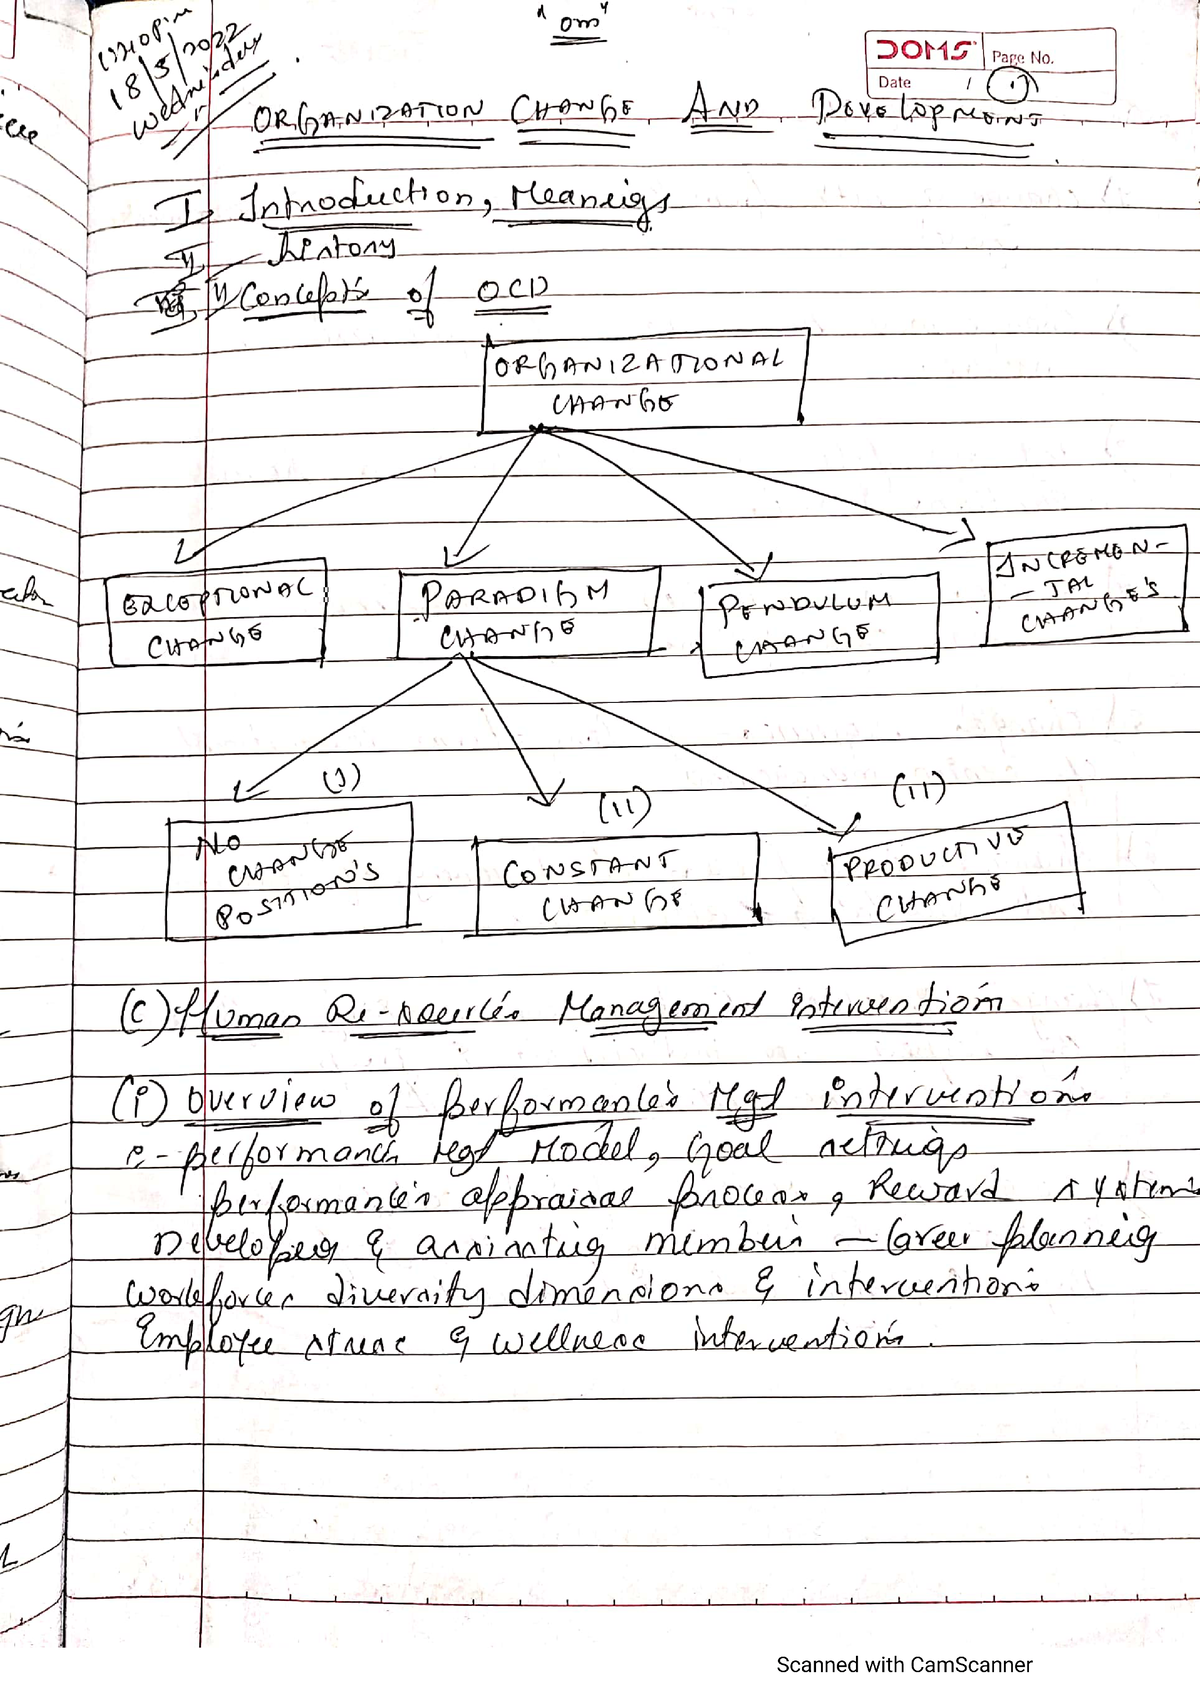 "om"
18/5/2022
Wednesday
DOMS Page No.
Date
ORGANIZATION CHANGE AND DEVELOPMENT
I Introduction, Meaneigs
II history
Concept's of OCD
ORGANIZATIONAL
CHANGE
EXCEPTIONAL
CHANGE
PARADIGM
CHANGE
PENDULUM
CHANGE
INCREMEN-
-TAL
CHANGE'S
(I)
(II)
(II)
NO
CHANGE
POSITION'S
CONSTANT
CHANGE
PRODUCTIVE
CHANGE
(C) Human Re-sources Management Interventions
(i) Overview of performance's Mgt interventions
performance Mgt Model, Goal settings
performance's appraisal process, Reward systems
Developing & assisting members – Career planning
workforces diversity dimensions & interventions
Employee stress & wellness interventions.
Scanned with CamScanner